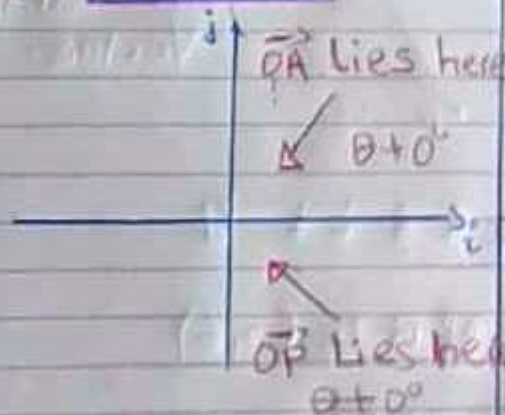 j
→
OA Lies here
θ + 0°
i
→
OP Lies he
θ + 0°